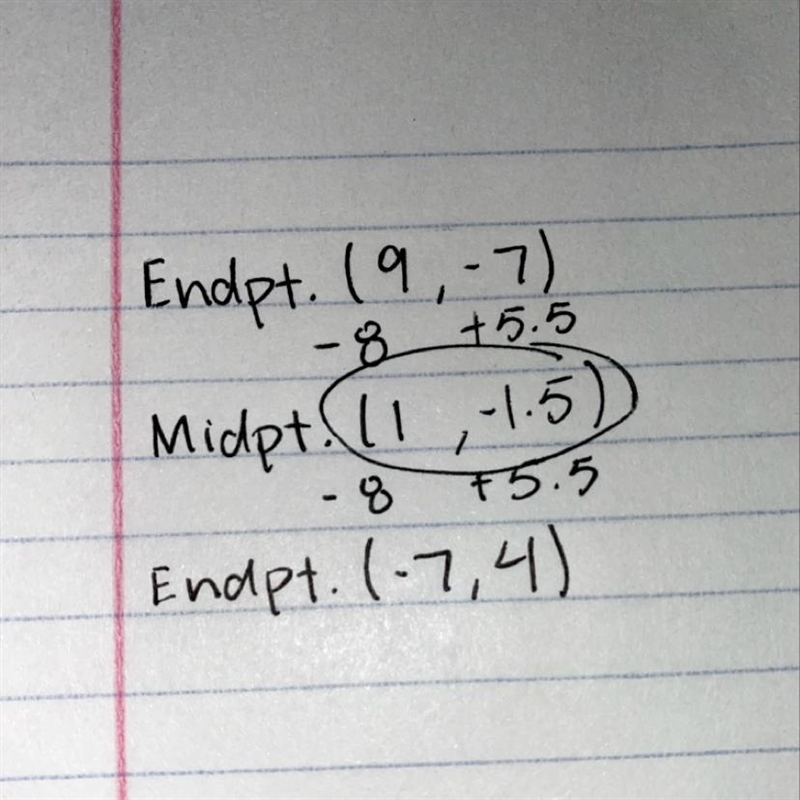 Endpt. (9, -7)
-8 +5.5
Midpt. (1, -1.5)
-8 +5.5
Endpt. (-7, 4)